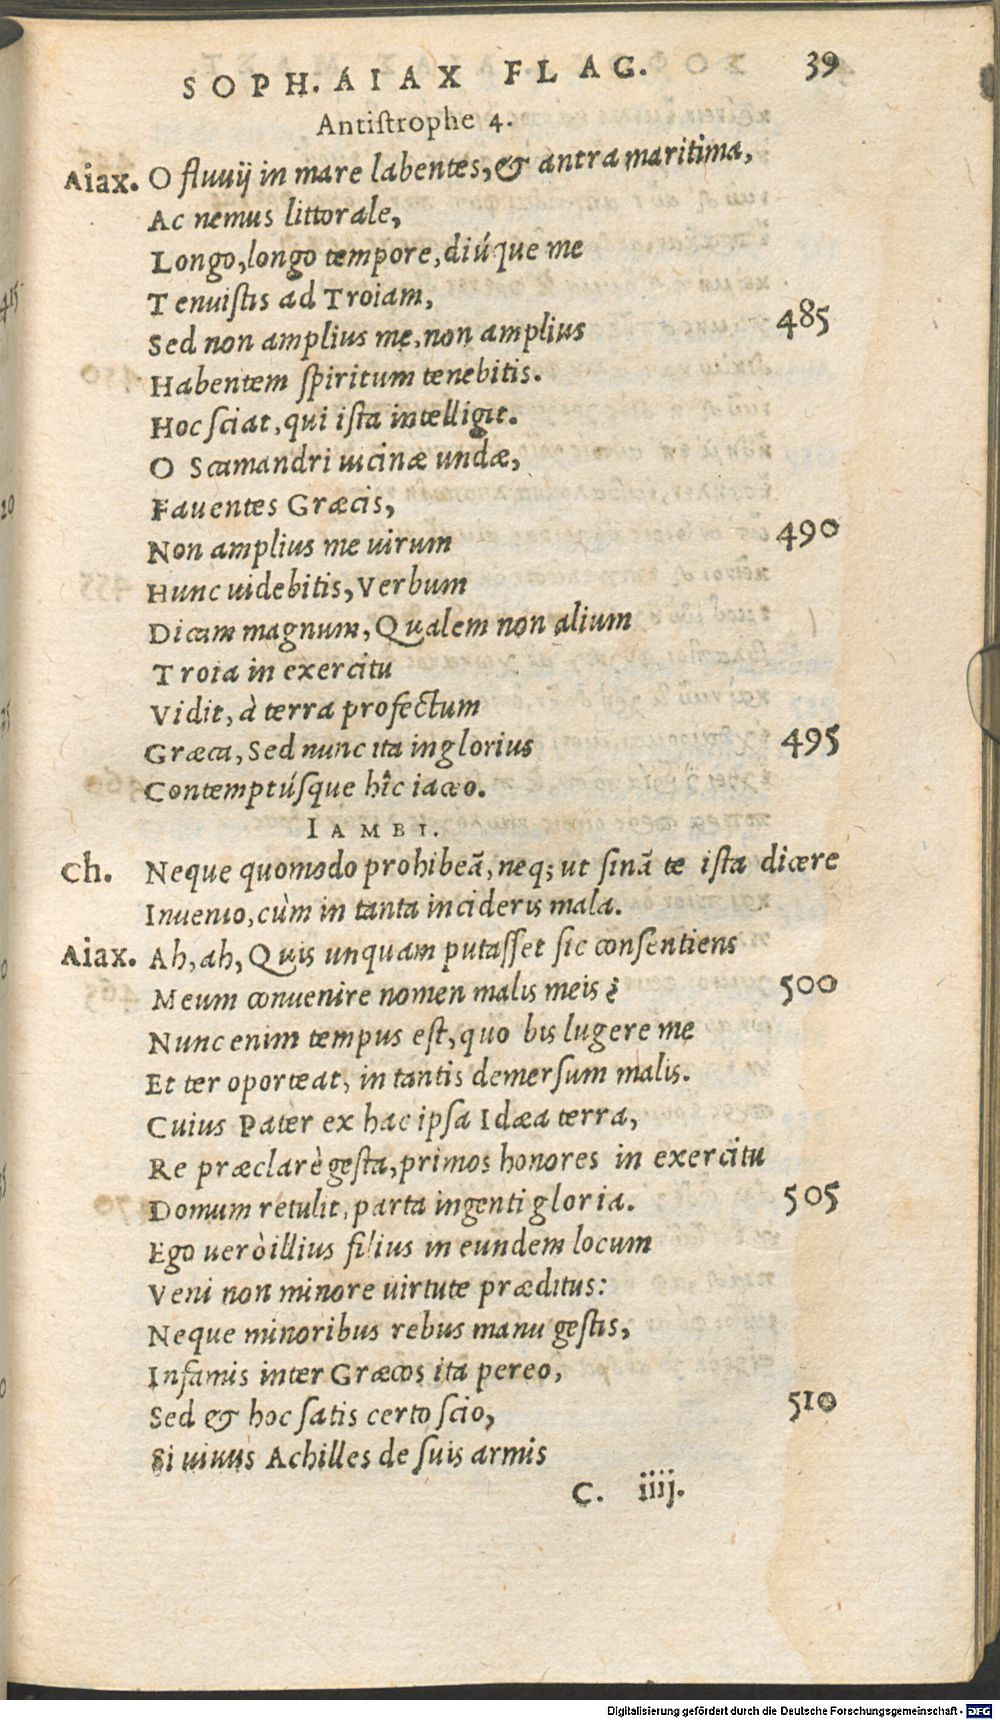 SOPH. AIAX FLAG. 39
Antistrophe 4.
Aiax. O fluuij in mare labentes, & antra maritima,
Ac nemus littorale,
Longo, longo tempore, diúque me
Tenuistis ad Troiam,
Sed non amplius me, non amplius 485
Habentem spiritum tenebitis.
Hoc sciat, qui ista intelligit.
O Scamandri uicinæ undæ,
Fauentes Græcis,
Non amplius me uirum 490
Hunc uidebitis, Verbum
Dicam magnum, Qualem non alium
Troia in exercitu
Vidit, à terra profectum
Græca, Sed nunc ita inglorius 495
Contemptúsque hîc iaceo.
IAMBI.
Ch. Neque quomodo prohibeã, neq; ut sinã te ista dicere
Inuenio, cùm in tanta incideris mala.
Aiax. Ah, ah, Quis unquam putasset sic consentiens
Meum conuenire nomen malis meis? 500
Nunc enim tempus est, quo bis lugere me
Et ter oporteat, in tantis demersum malis.
Cuius Pater ex hac ipsa Idæa terra,
Re præclarè gesta, primos honores in exercitu
Domum retulit, parta ingenti gloria. 505
Ego uerò illius filius in eundem locum
Veni non minore uirtute præditus:
Neque minoribus rebus manu gestis,
Infamis inter Græcos ita pereo,
Sed & hoc satis certo scio, 510
Si uiuus Achilles de suis armis
C. iiij.
Digitalisierung gefördert durch die Deutsche Forschungsgemeinschaft - DFG